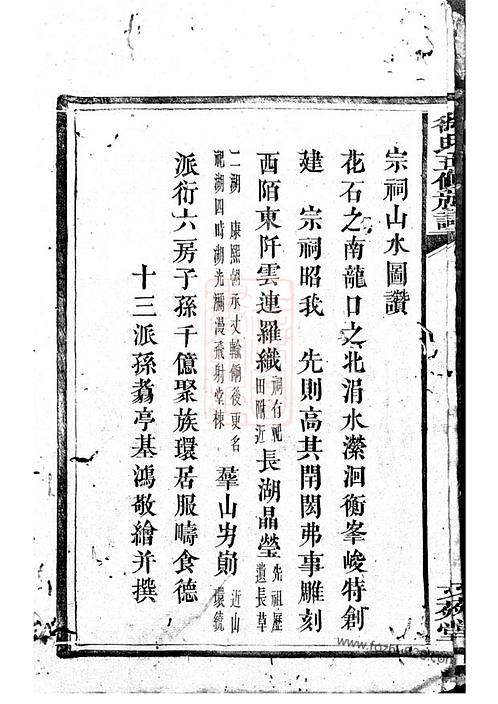 宗祠山水圖讚
花石之南龍口之北涓水瀠洄衡峯峻特創
建　宗祠昭我　先則高其閈閎弗事雕刻
西陌東阡雲連羅織祠有祀田附近長湖晶瑩先祖歷遺長草
二湖　康熙間承丈輸餉後更名祀湖四時湖光瀰漫飛射堂棟羣山屴崱近山環繞
派衍六房子孫千億聚族環居服疇食德
十三派孫翥亭基鴻敬繪并撰
氏五修族譜
www.fozhu920.com